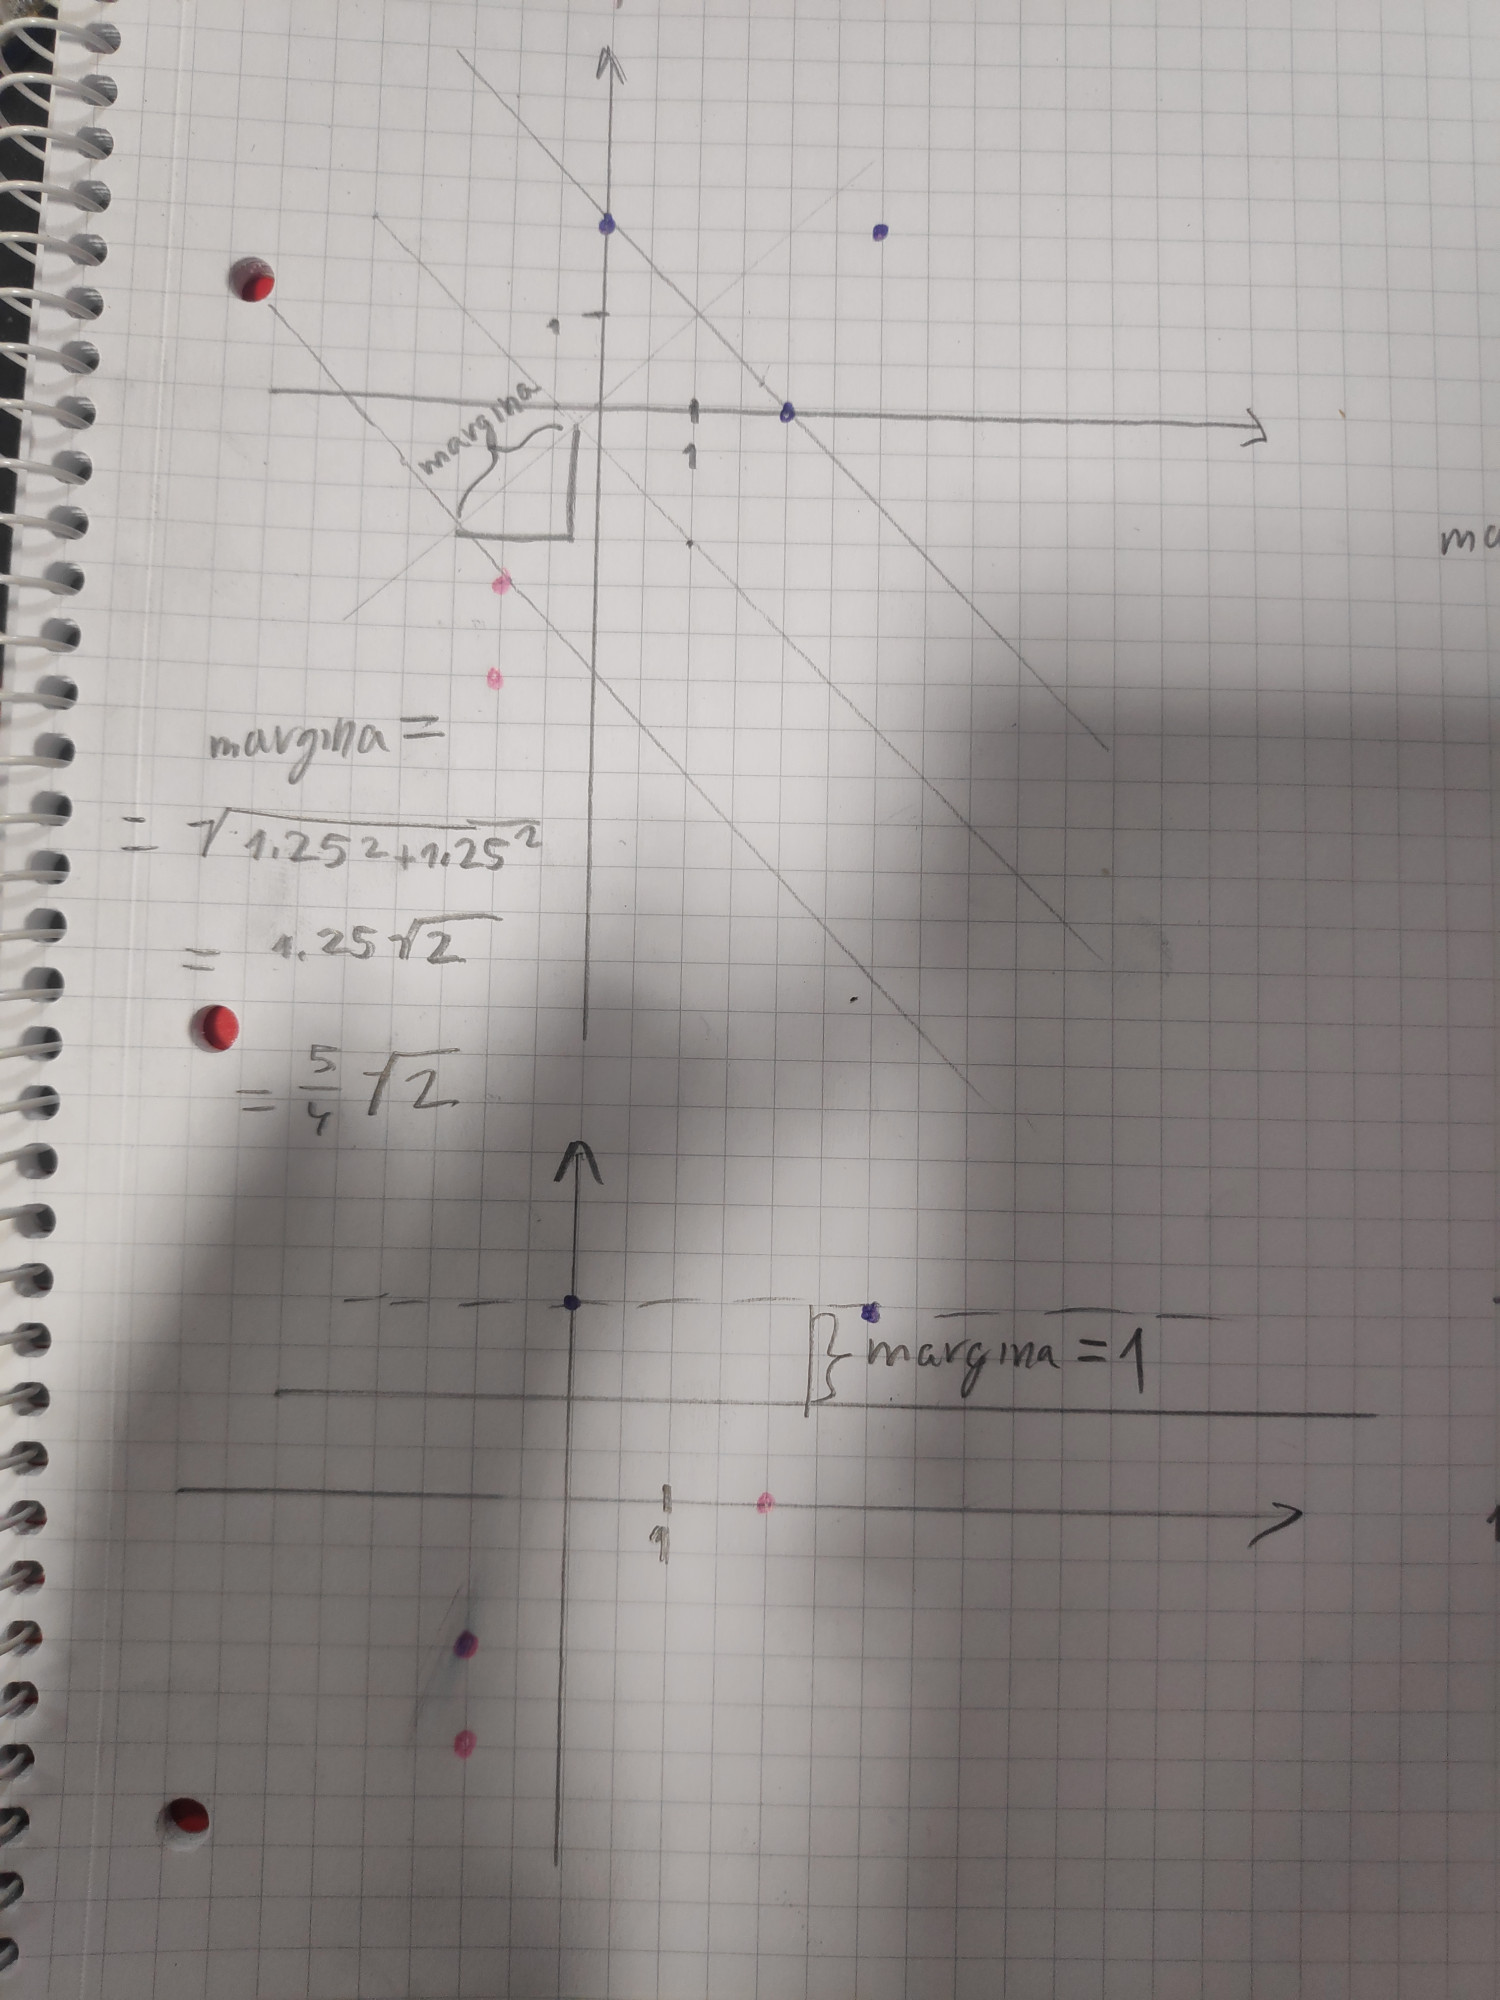 1
margina
1
ma
margina =
= √1.25²+1.25²
= 1.25√2
= 5/4 √2
} margina = 1
1